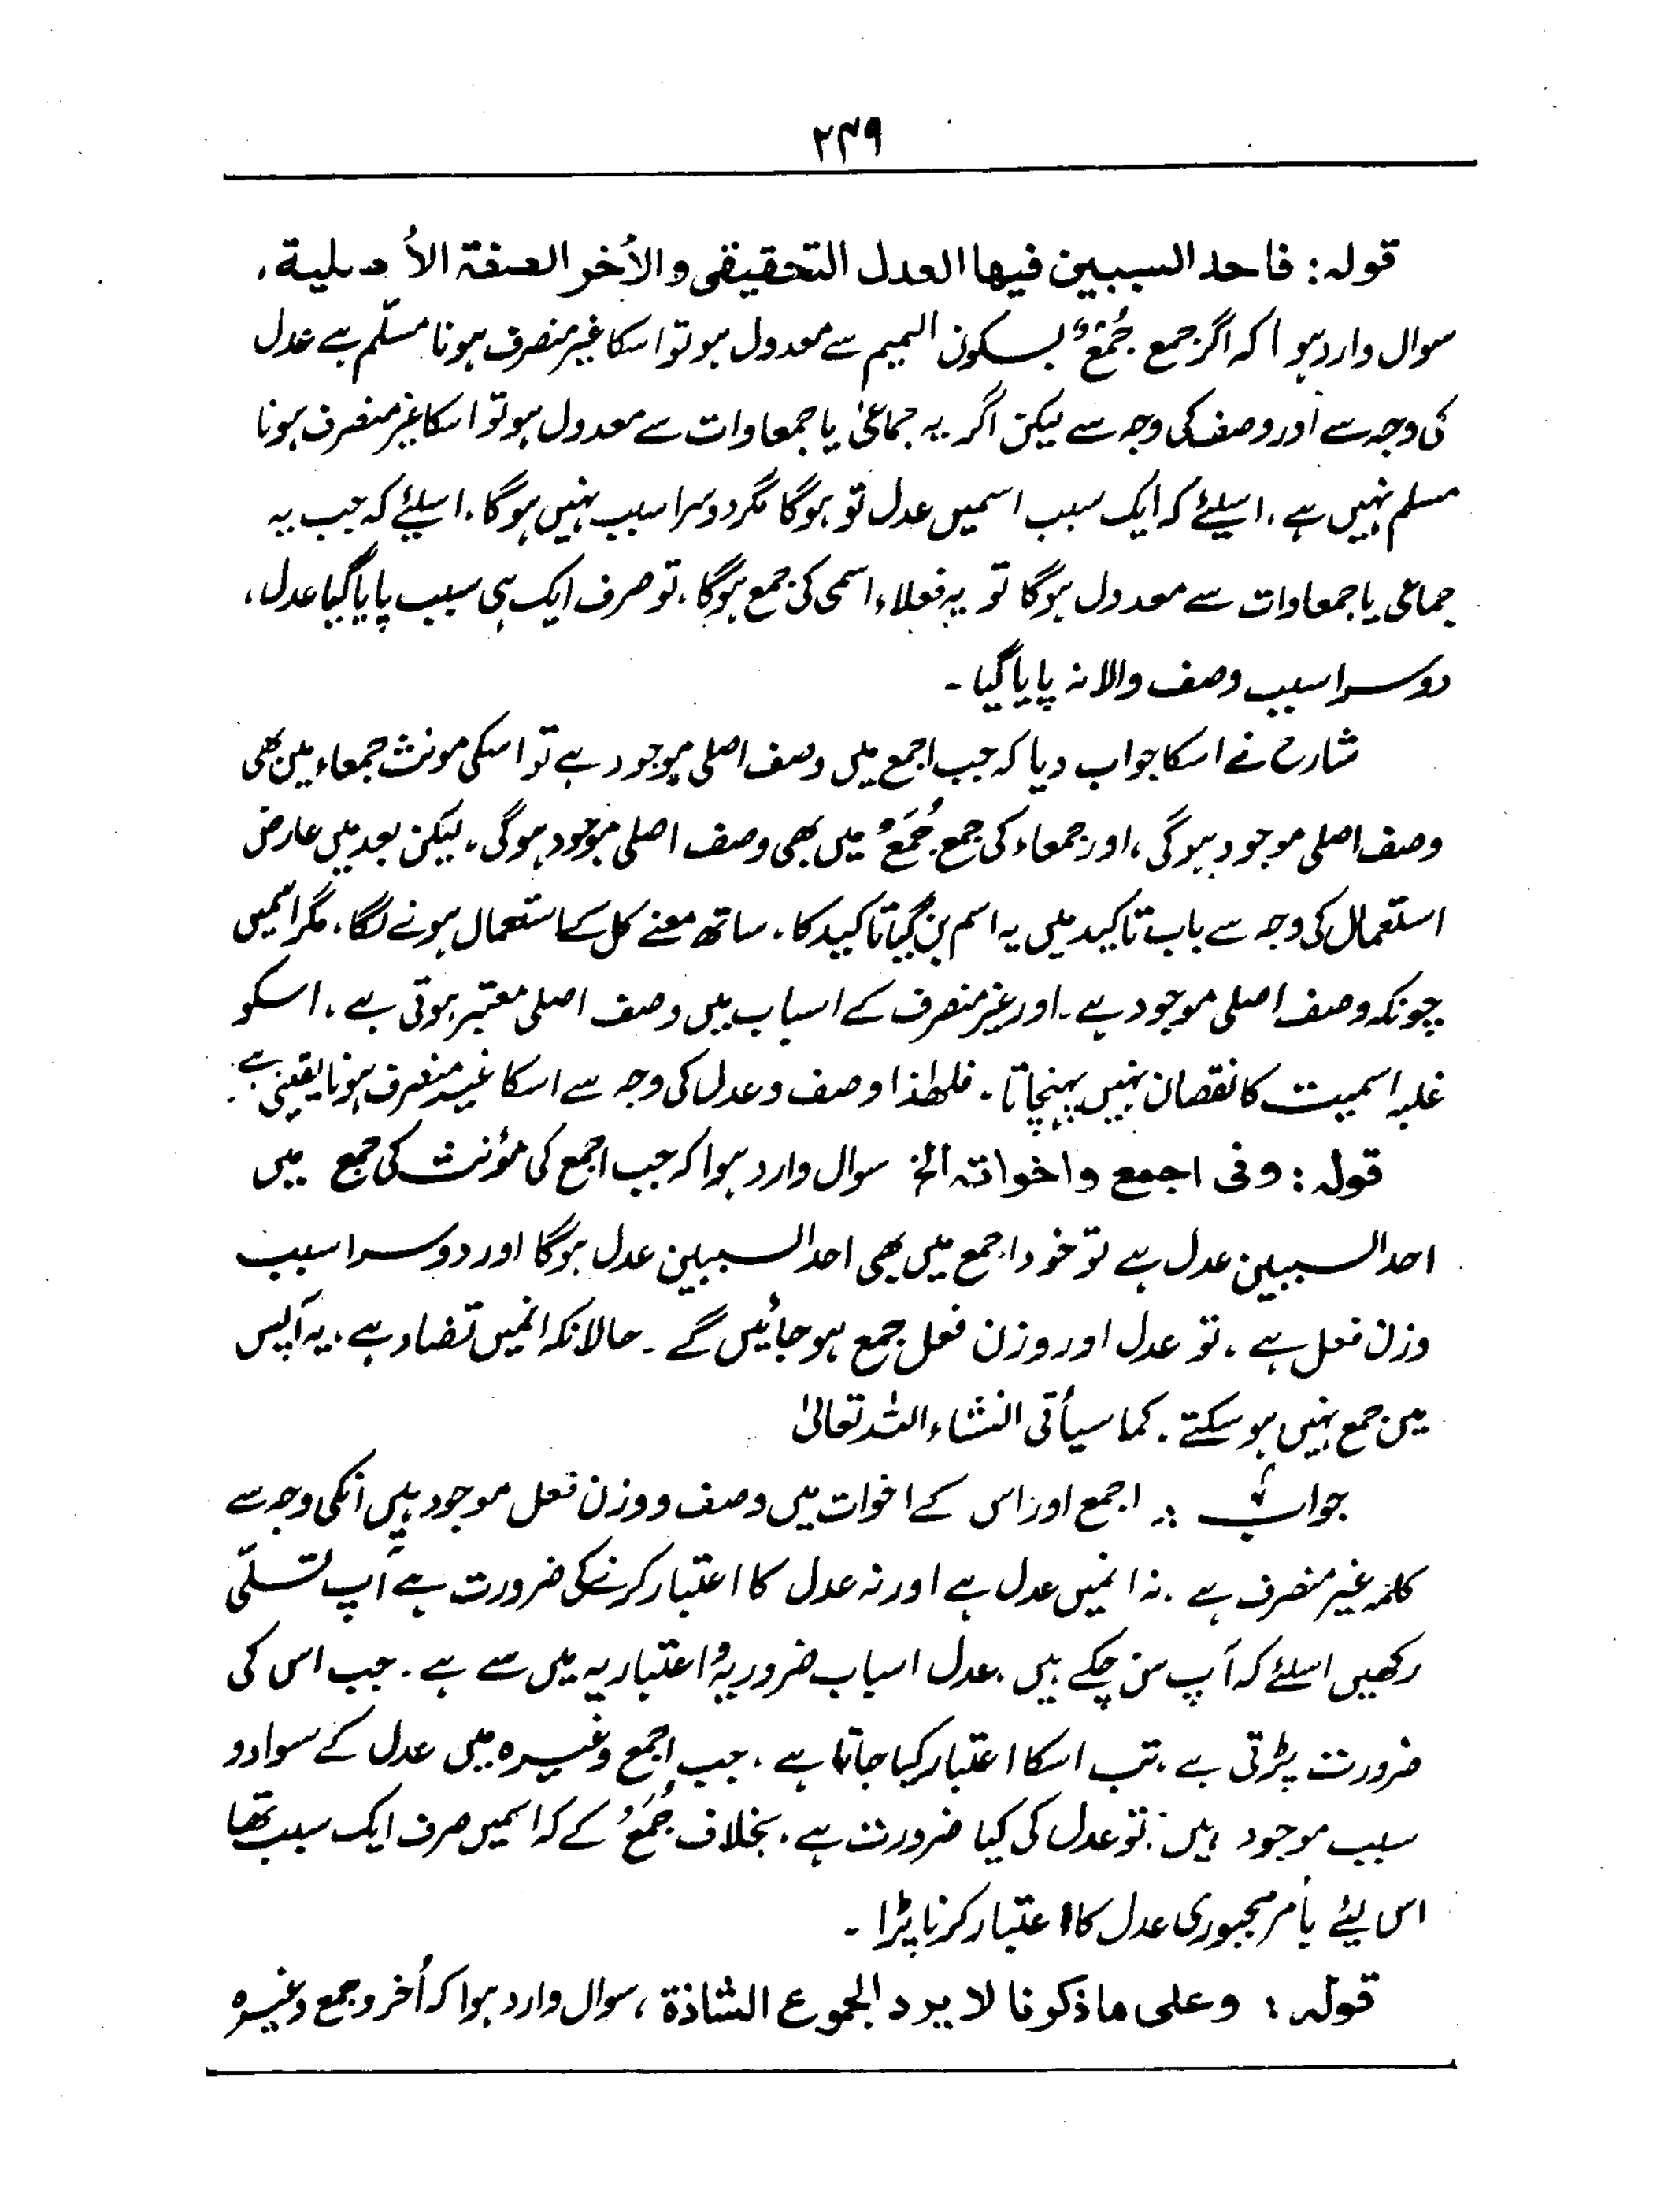 ۲۴۹
قولہ: فاحد السببین فیھا العدل التحقیقی والأخر الصفۃ الأصلیۃ،
سوال وارد ہوا کہ اگر جمع جُمْعٌ بسکون المیم سے معدول ہو تو اسکا غیر منصرف ہونا مسلّم ہے عدل
کی وجہ سے اور وصف کی وجہ سے لیکن اگر یہ جماعیٰ یا جمعاوات سے معدول ہو تو اسکا غیر منصرف ہونا
مسلم نہیں ہے، اسلیئے کہ ایک سبب اسمیں عدل تو ہوگا مگر دوسرا سبب نہیں ہوگا، اسلیئے کہ جب یہ
جماعی یا جمعاوات سے معدول ہوگا تو یہ فعلاء اسمی کی جمع ہوگا، تو صرف ایک ہی سبب پایا گیا عدل،
دوسرا سبب وصف والا نہ پایا گیا ۔
شارح نے اسکا جواب دیا کہ جب اجمع میں وصف اصلی موجود ہے تو اسکی مونث جمعاء میں بھی
وصف اصلی موجود ہوگی، اور جمعاء کی جمع جُمَعُ میں بھی وصف اصلی موجود ہوگی، لیکن بعد میں عارض
استعمال کی وجہ سے باب تاکید میں یہ اسم بن گیا تاکید کا، ساتھ معنے کل کے استعمال ہونے لگا، مگر اسمیں
چونکہ وصف اصلی موجود ہے۔ اور غیر منصرف کے اسباب میں وصف اصلی معتبر ہوتی ہے، اسکو
غلبہ اسمیت کا نقصان نہیں پہنچاتا۔ فلھٰذا وصف و عدل کی وجہ سے اسکا غیر منصرف ہونا یقینی ہے۔
قولہ: وفی اجمع واخواتہ الخ سوال وارد ہوا کہ جب اجمع کی مؤنث کی جمع میں
احد السببین عدل ہے تو خود اجمع میں بھی احد السببین عدل ہوگا اور دوسرا سبب
وزن فعل ہے، تو عدل اور وزن فعل جمع ہو جائیں گے۔ حالانکہ انمیں تضاد ہے، یہ آپس
میں جمع نہیں ہو سکتے، کما سیأتی انشاء اللہ تعالیٰ
جواب :۔ اجمع اور اس کے اخوات میں وصف و وزن فعل موجود ہیں انکی وجہ سے
کلمہ غیر منصرف ہے، نہ انمیں عدل ہے اور نہ عدل کا اعتبار کرنیکی ضرورت ہے آپ تسلّی
رکھیں اسلئے کہ آپ سن چکے ہیں، عدل اسباب ضروریہ و اعتباریہ میں سے ہے۔ جب اس کی
ضرورت پڑتی ہے، تب اسکا اعتبار کیا جاتا ہے، جب اجمع وغیرہ میں عدل کے سوا دو
سبب موجود ہیں، تو عدل کی کیا ضرورت ہے، بخلاف جُمَعُ کے کہ اسمیں صرف ایک سبب تھا
اس لیئے بأمر مجبوری عدل کا اعتبار کرنا پڑا ۔
قولہ: وعلی ماذکرنا لا یرد الجموع الشاذۃ، سوال وارد ہوا کہ اُخر و جمع وغیرہ